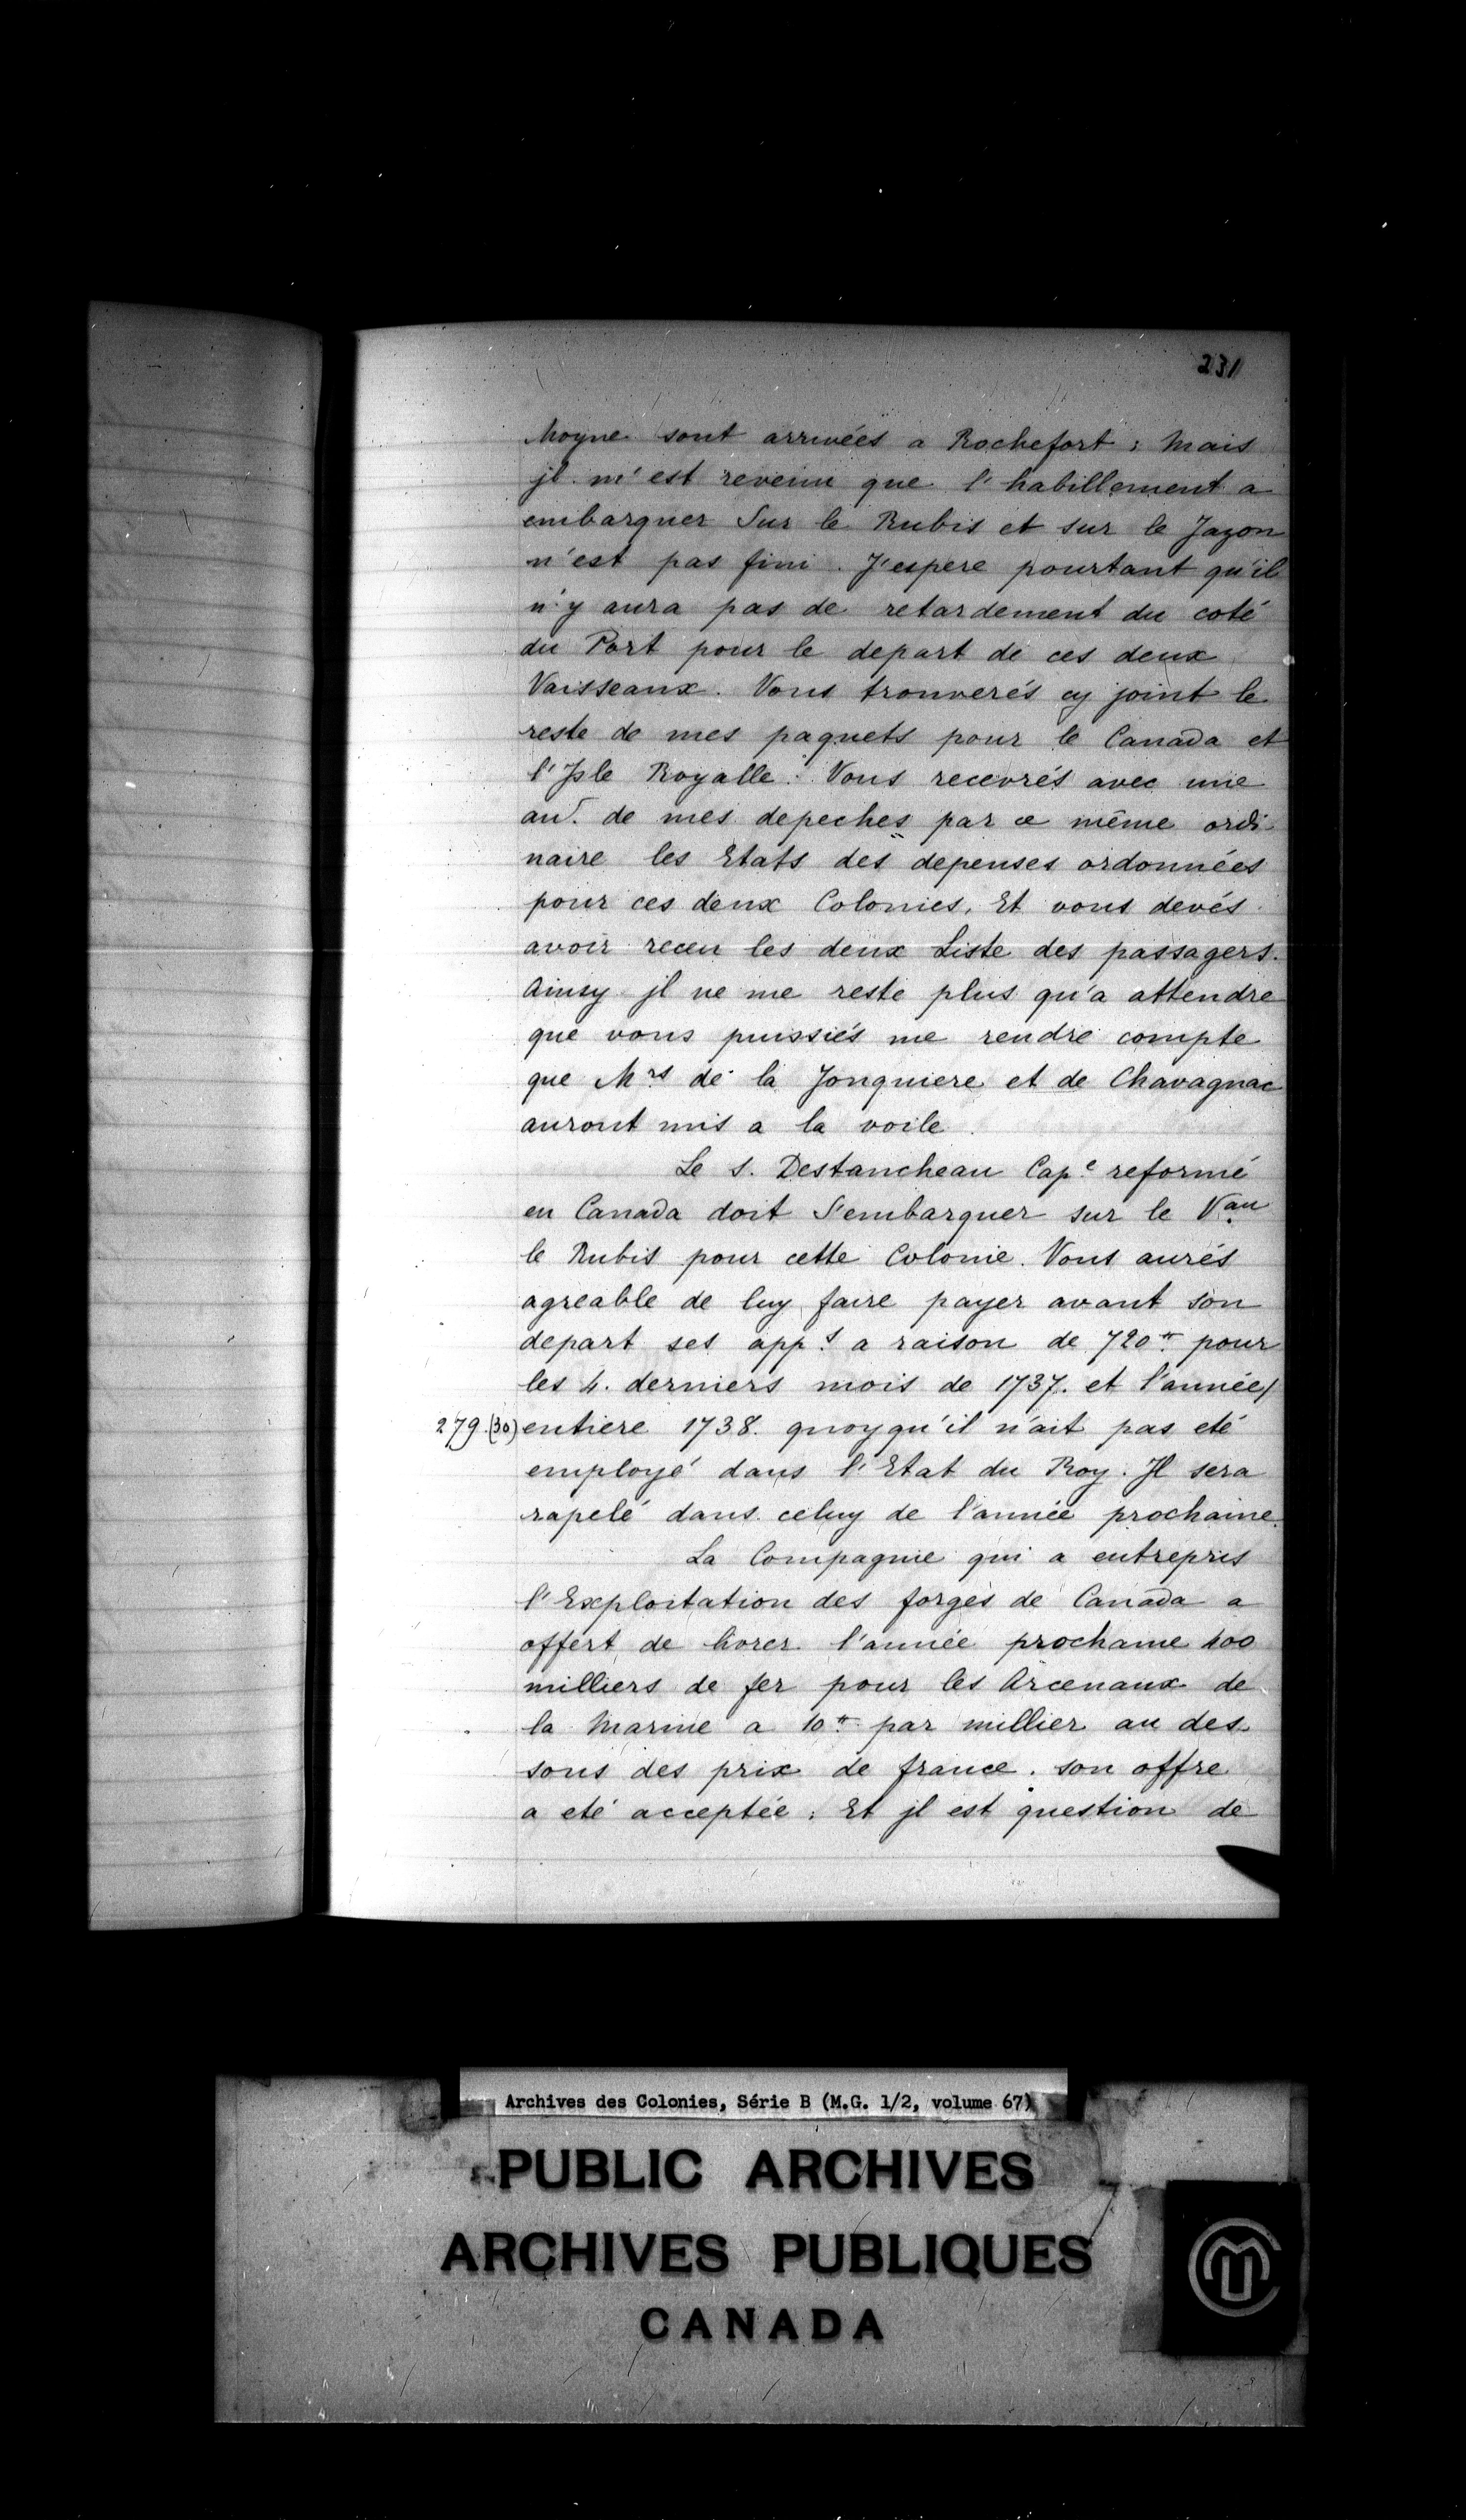 231
Moyne sont arrivées a Rochefort ; Mais
jl m'est revenu que l'habillement a
embarquer Sur le Rubis et sur le Jazon
n'est pas fini . J'espere pourtant qu'il
n'y aura pas de retardement du coté
du Port pour le depart de ces deux
Vaisseaux. Vous trouverés cy joint le
reste de mes paquets pour le Canada et
l'Jsle Royalle. Vous recevrés avec une
au.^t de mes depeches par ce même ordi
naire les Etats des depenses ordonnées
pour ces deux Colonies, Et vous devés
avoir receu les deux Liste des passagers.
Ainsy jl ne me reste plus qu'a attendre
que vous puissiés me rendre compte
que M^rs de la Jonquiere et de Chavagnac
auront mis a la voile .
Le S. Destancheau Cap.^e reformé
en Canada doit S'embarquer sur le V^au
le Rubis pour cette Colonie. Vous aurés
agreable de luy faire payer avant son
depart ses app.^s a raison de 720^tt pour
les 4. derniers mois de 1737. et l'année/
279.(30) entiere 1738. quoyqu'il n'ait pas eté
employé dans l'Etat du Roy. Jl sera
rapelé dans celuy de l'année prochaine.
La Compagnie qui a entrepris
l'Exploitation des forges de Canada a
offert de livrer l'année prochaine 400
milliers de fer pour les Arcenaux de
la Marine a 10^tt par millier au des
sous des prix de france . son offre
a eté acceptée ; Et jl est question de
Archives des Colonies, Série B (M.G. 1/2, volume 67)
PUBLIC ARCHIVES
ARCHIVES PUBLIQUES
CANADA